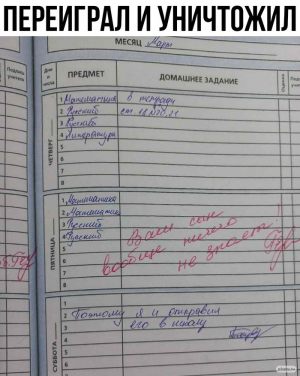 ПЕРЕИГРАЛ И УНИЧТОЖИЛ
МЕСЯЦ Март
ПРЕДМЕТ
ДОМАШНЕЕ ЗАДАНИЕ
ЧЕТВЕРГ
1 Математика в тетради
2 Русский
3 Русский
4 Литература
5
6
7
8
ПЯТНИЦА
1 Математика
2 Математика
3 Русский
4 Русский
5
6
7
8
Ваш сын
вообще ничего
не знает!
СУББОТА
1
2 Поэтому я и отправил
3 его в школу
4
5
6